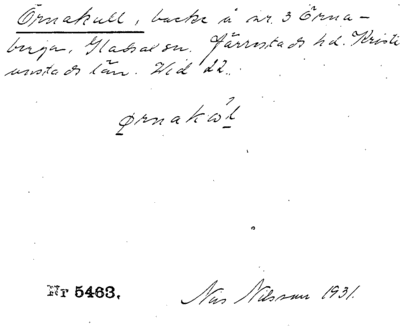 Örnakull, backe å nr. 3 Örna-
berga, Gladsax sn. Järrestads hd. Kristi
anstads län. Vid 22.
ørnakọ́l
Nr 5463.
Nils Nilsson 1931.